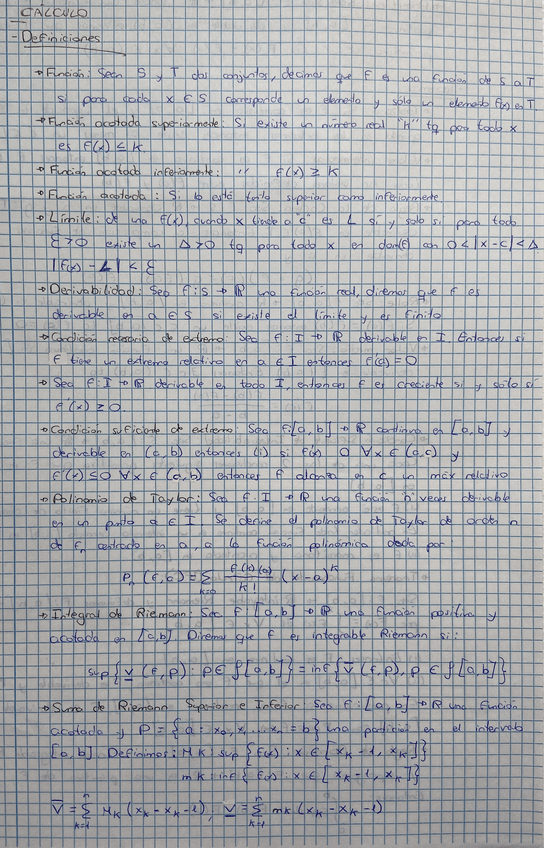 CÁLCULO
- Definiciones
→ Función: Sean S y T dos conjuntos, decimos que f es una función de S a T
si para cada x ∈ S corresponde un elemento y solo un elemento f(x) ∈ T.
→ Función acotada superiormente: Si existe un número real "K" tq para todo x
es f(x) ≤ K.
→ Función acotada inferiormente: " f(x) ≥ K
→ Función acotada: Si lo está tanto superior como inferiormente
→ Límite: de una f(x), cuando x tiende a "c" es L si y solo si para todo
ε > 0 existe un Δ > 0 tq para todo x en dom(f) con 0 < |x - c| < Δ.
|f(x) - L| < ε
→ Derivabilidad: Sea f: S → ℝ una función real, diremos que f es
derivable en a ∈ S si existe el límite y es finito
→ Condición necesaria de extremo: Sea f: I → ℝ derivable en I. Entonces si
f tiene un extremo relativo en a ∈ I entonces f'(a) = 0
→ Sea f: I → ℝ derivable en todo I, entonces f es creciente si y solo si
f'(x) ≥ 0.
→ Condición suficiente de extremo: Sea f: [a, b] → ℝ continua en [a, b] y
derivable en (a, b) entonces (i) si f'(x) 0 ∀x ∈ (a, c) y
f'(x) ≤ 0 ∀x ∈ (a, b) entonces f alcanza en c un máx relativo
→ Polinomio de Taylor: Sea f: I → ℝ una función n veces derivable
en un punto a ∈ I. Se define el polinomio de Taylor de orden n
de f, centrado en a, a la función polinómica dada por:
Pn (f, a) = Σ k=0 f(k)(a) / k! (x - a)^k
→ Integral de Riemann: Sea f: [a, b] → ℝ una función positiva y
acotada en [a, b] Diremos que f es integrable Riemann si:
sup{V (f, p): p ∈ f[a, b]} = inf{V̅ (f, p), p ∈ f[a, b]}
→ Suma de Riemann Superior e Inferior: Sea f: [a, b] → ℝ una función
acotada y P = {a = x0, x1 ... xn = b} una partición en el intervalo
[a, b]. Definimos: Mk: sup {f(x): x ∈ [xk - 1, xk]}
mk: inf {f(x): x ∈ [xk - 1, xk]}
V̅ = Σ k=1 n Mk (xk - xk - 1), V = Σ k=1 n mk (xk - xk - 1)